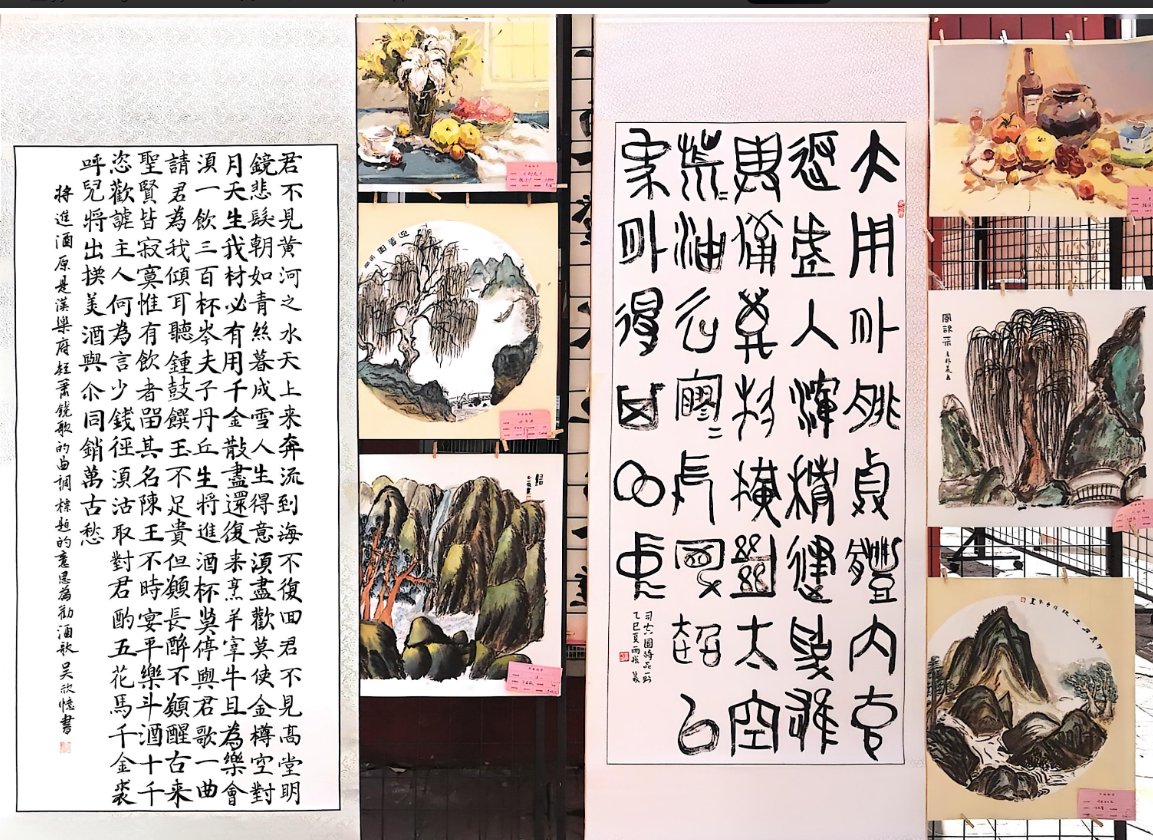 君不見黄河之水天上来奔流到海不復回君不見高堂明
鏡悲髮朝如青絲暮成雪人生得意須盡歡莫使金樽空對
月天生我材必有用千金散盡還復来烹羊宰牛且為樂會
須一飲三百杯岑夫子丹丘生將進酒杯莫停與君歌一曲
請君為我傾耳聽鍾鼓饌玉不足貴但願長醉不願醒古来
聖賢皆寂寞惟有飲者留其名陳王不時宴平樂斗酒十千
恣歡謔主人何為言少錢徑須沽取對君酌五花馬千金裘
呼兒將出換美酒與尒同銷萬古愁
將進酒原是漢樂府短簫鐃歌的曲調標題的意思為勸酒歌 吴欣憶書
大用外腓真體内充
返虚入渾積健為雄
具備萬物橫絕太空
荒=油雲寥=長風超以
象外得其環中
司空圖詩品一則
乙巳夏雨